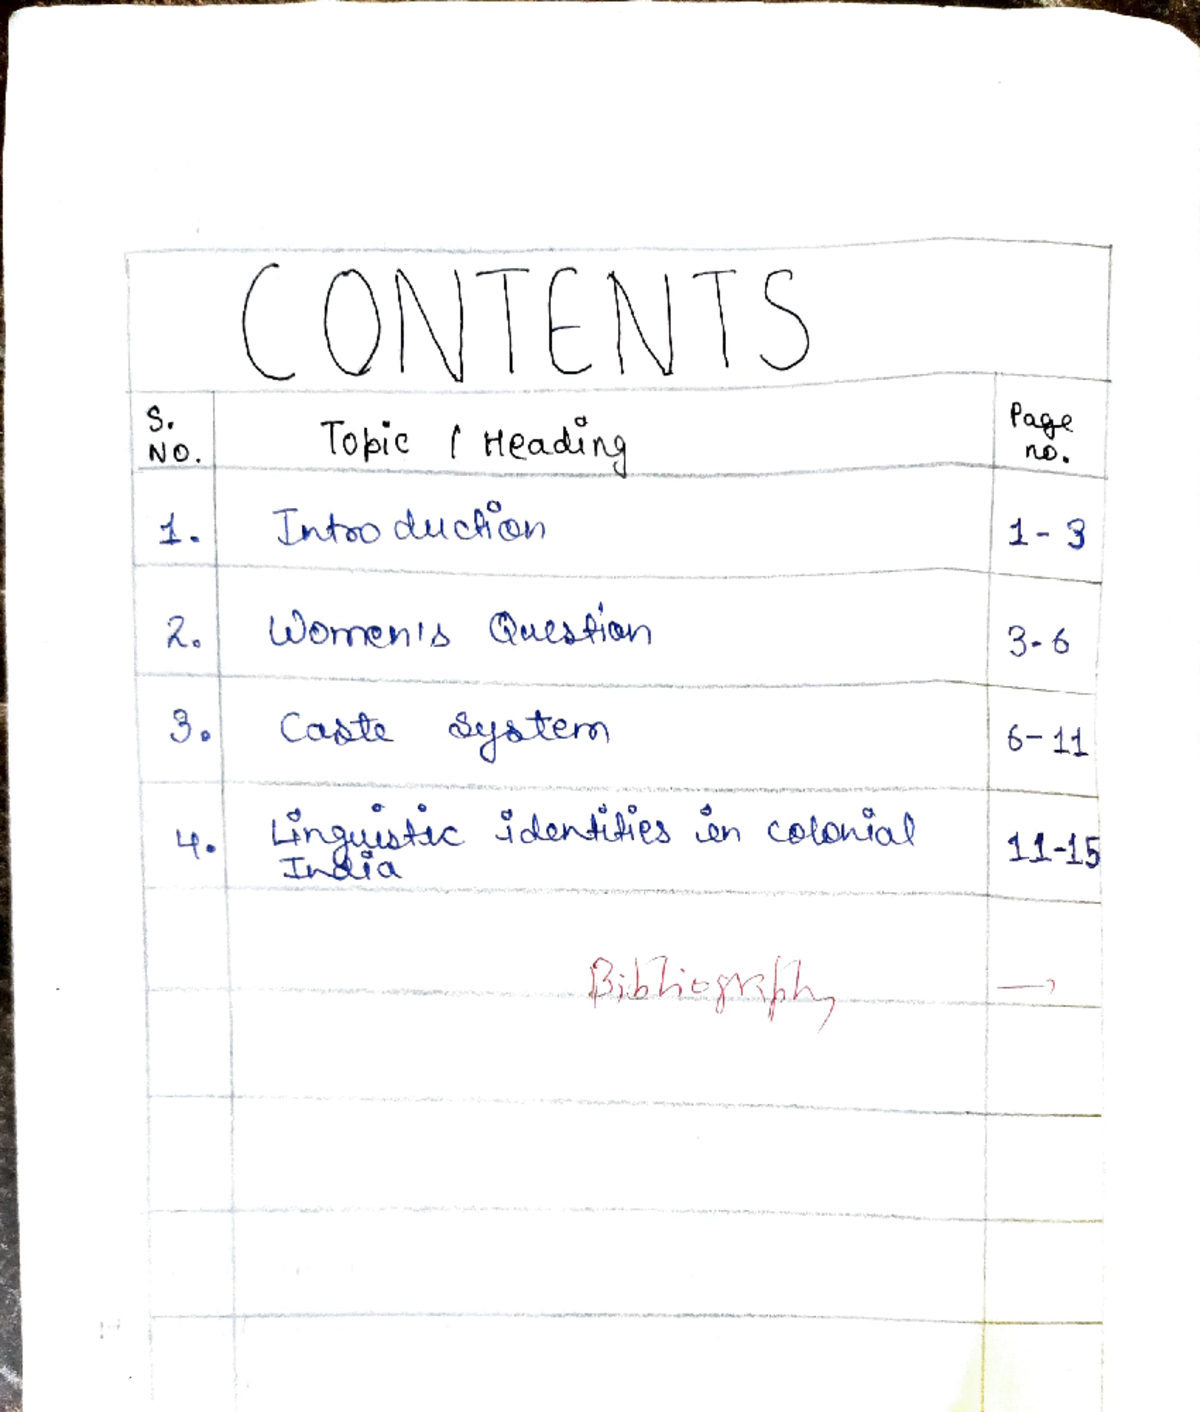 CONTENTS
S. NO. Topic / Heading Page no.
1. Introduction 1-3
2. Women's Question 3-6
3. Caste System 6-11
4. Linguistic identities in colonial 11-15
India
Bibliography →